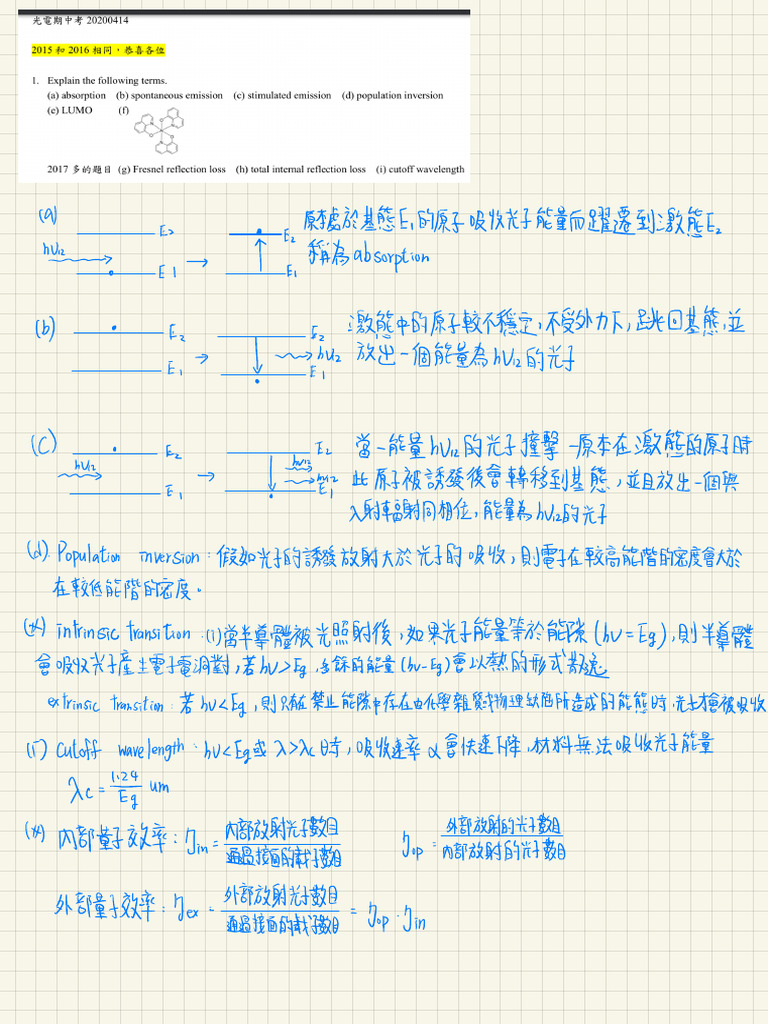 光電期中考 20200414
2015 和 2016 相同，恭喜各位
1. Explain the following terms.
(a) absorption (b) spontaneous emission (c) stimulated emission (d) population inversion
(e) LUMO (f)
2017 多的題目 (g) Fresnel reflection loss (h) total internal reflection loss (i) cutoff wavelength
(a) E2 E2 原本處於基態E1的原子吸收光子能量而躍遷到激態E2
hυ12 E1 → E1 稱為absorption
(b) E2 E2 激態中的原子較不穩定,不受外力下,跳回基態,並
E1 → hυ12 E1 放出一個能量為hυ12的光子
(c) E2 E2 當一能量hυ12的光子撞擊一原本在激態的原子時
hυ12 → hυ12 hυ12 此原子被誘發後會轉移到基態,並且放出一個與
E1 E1 入射輻射同相位,能量為hυ12的光子
(d) Population inversion：假如光子的誘發放射大於光子的吸收,則電子在較高能階的密度會大於
在較低能階的密度。
(x) intrinsic transition：(i)當半導體被光照射後,如果光子能量等於能隙(hυ=Eg),則半導體
會吸收光子產生電子電洞對,若hυ>Eg,多餘的能量(hυ-Eg)會以熱的形式散逸
extrinsic transition：若hυ<Eg,則只有在禁止能隙中存在由化學雜質或物理缺陷所造成的能態時,光子才會被吸收
(i) cutoff wavelength：hυ<Eg或λ>λc時,吸收速率α會快速下降,材料無法吸收光子能量
λc = 1.24 / Eg um
(x) 內部量子效率：ηin = 內部放射光子數目 / 通過接面的載子數目 ηop = 外部放射的光子數目 / 內部放射的光子數目
外部量子效率：ηex = 外部放射光子數目 / 通過接面的載子數目 = ηop · ηin